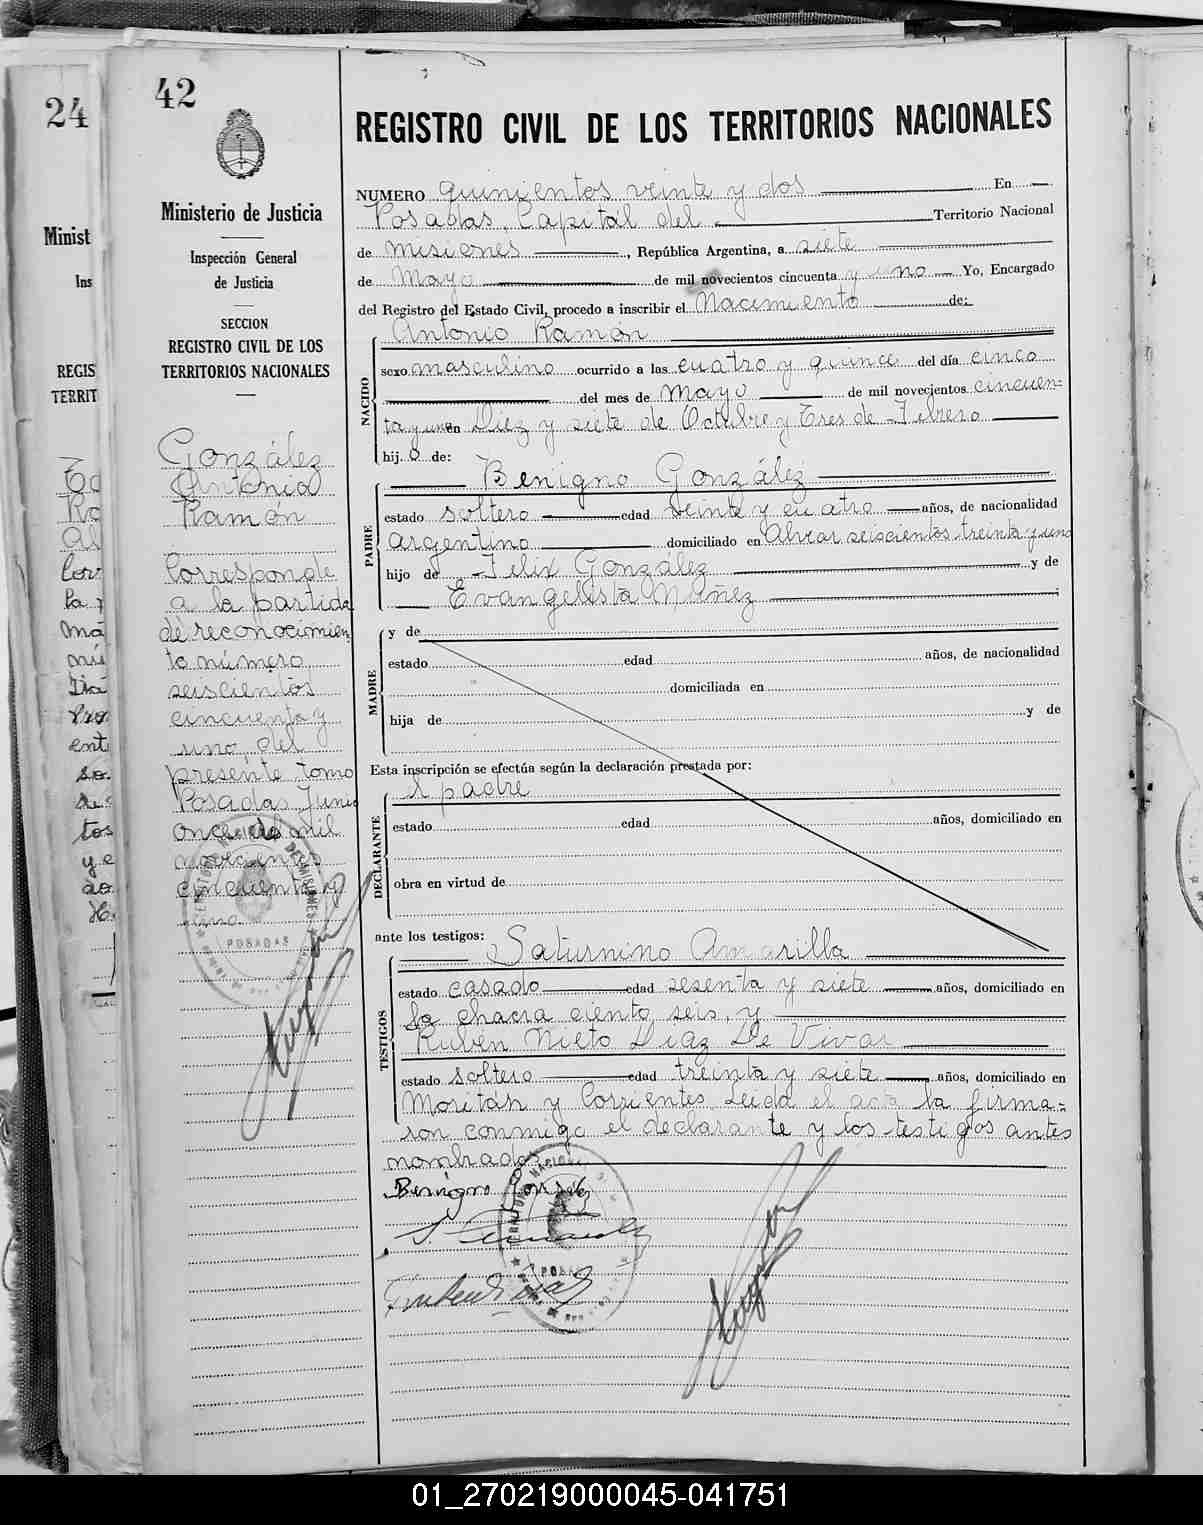 24
Minist
Ins
REGIS
TERRIT
42
Ministerio de Justicia
Inspección General
de Justicia
SECCION
REGISTRO CIVIL DE LOS
TERRITORIOS NACIONALES
González
Antonio
Ramón
Corresponde
a la partida
de reconocimien
to número
seiscientos
cincuenta y
uno, del
presente tomo
Posadas, Junio
once de mil
novecientos
cincuenta y
uno
POSADAS
REGISTRO CIVIL DE LOS TERRITORIOS NACIONALES
NUMERO quinientos veinte y dos En
Posadas, Capital del Territorio Nacional
de Misiones, República Argentina, a siete
de Mayo de mil novecientos cincuenta y uno Yo, Encargado
del Registro del Estado Civil, procedo a inscribir el Nacimiento de:
NACIDO
Antonio Ramón
sexo masculino ocurrido a las cuatro y quince del día cinco
del mes de Mayo de mil novecientos cincuen-
ta y uno en Diez y siete de Octubre y Tres de Febrero
hijo de:
PADRE
Benigno González
estado soltero edad veinte y cuatro años, de nacionalidad
argentino domiciliado en Alvear seiscientos treinta y uno
hijo de Felix González y de
Evangelista Núñez
MADRE
y de
estado edad años, de nacionalidad
domiciliada en
hija de y de
Esta inscripción se efectúa según la declaración prestada por:
DECLARANTE
el padre
estado edad años, domiciliado en
obra en virtud de
ante los testigos:
TESTIGOS
Saturnino Amarilla
estado casado edad sesenta y siete años, domiciliado en
la chacra ciento seis, y
Rubén Nieto Diaz De Vivar
estado soltero edad treinta y siete años, domiciliado en
Moritán y Corrientes. Leída el acta la firma-
ron conmigo el declarante y los testigos antes
nombrados
Benigno González
01_270219000045-041751